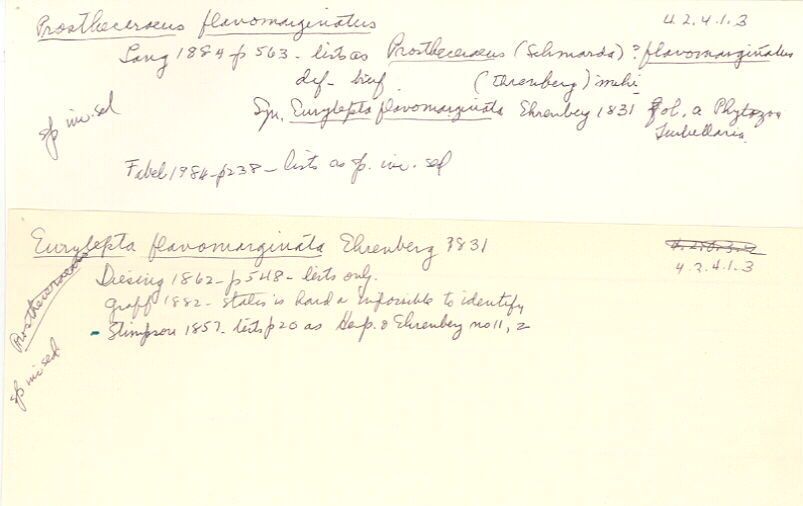 Prostheceraeus flavomarginatus 4.2.4.1.3
Lang 1884-p 563 - lists as Prostheceraeus (Schmarda) ? flavomarginatus
def - brief (Ehrenberg) mihi
sp inc. sed
Syn. Eurylepta flavomarginata Ehrenberg 1831 fol. a Phytozoa
Turbellaria
Faubel 1984-p238 - lists as sp. inc. sed
Eurylepta flavomarginata Ehrenberg 1831
4.2.4.1.3
Prostheceraeus
sp inc sed
Diesing 1862-p548 - lists only.
Graff 1882 - states is hard a impossible to identify
- Stimpson 1857 - lists p20 as Ehrenberg no 11, 2